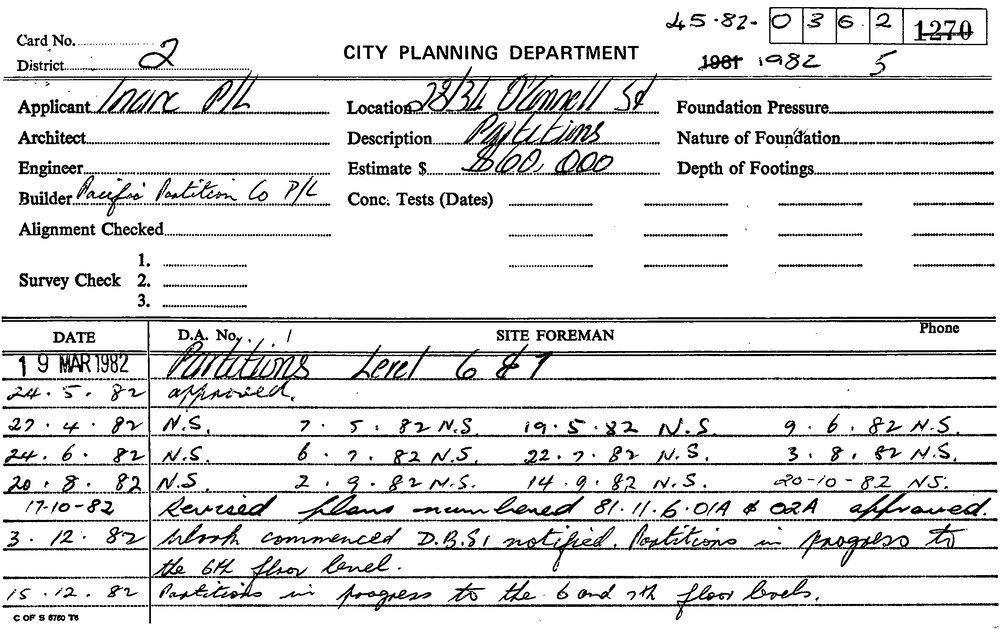 45·82- 0 3 6 2 1270
Card No.
District 2
CITY PLANNING DEPARTMENT
1981 1982 5
Applicant Incirc P/L
Location 28/34 O'Connell St
Foundation Pressure
Architect
Description Partitions
Nature of Foundation
Engineer
Estimate $ $60,000
Depth of Footings
Builder Pacific Partition Co P/L
Conc. Tests (Dates)
Alignment Checked
Survey Check
1.
2.
3.
DATE D.A. No. SITE FOREMAN Phone
19 MAR 1982 Partitions Level 6 & 7
24.5.82 approved.
27.4.82 N.S. 7.5.82 N.S. 19.5.82 N.S. 9.6.82 N.S.
24.6.82 N.S. 6.7.82 N.S. 22.7.82 N.S. 3.8.82 N.S.
20.8.82 N.S. 2.9.82 N.S. 14.9.82 N.S. 20-10-82 NS.
17-10-82 Revised plans numbered 81.11.6.01A & 02A approved.
3.12.82 Work commenced D.B.S. notified. Partitions in progress to
the 6th floor level.
15.12.82 Partitions in progress to the 6 and 7th floor levels.
C OF S 5760 T6